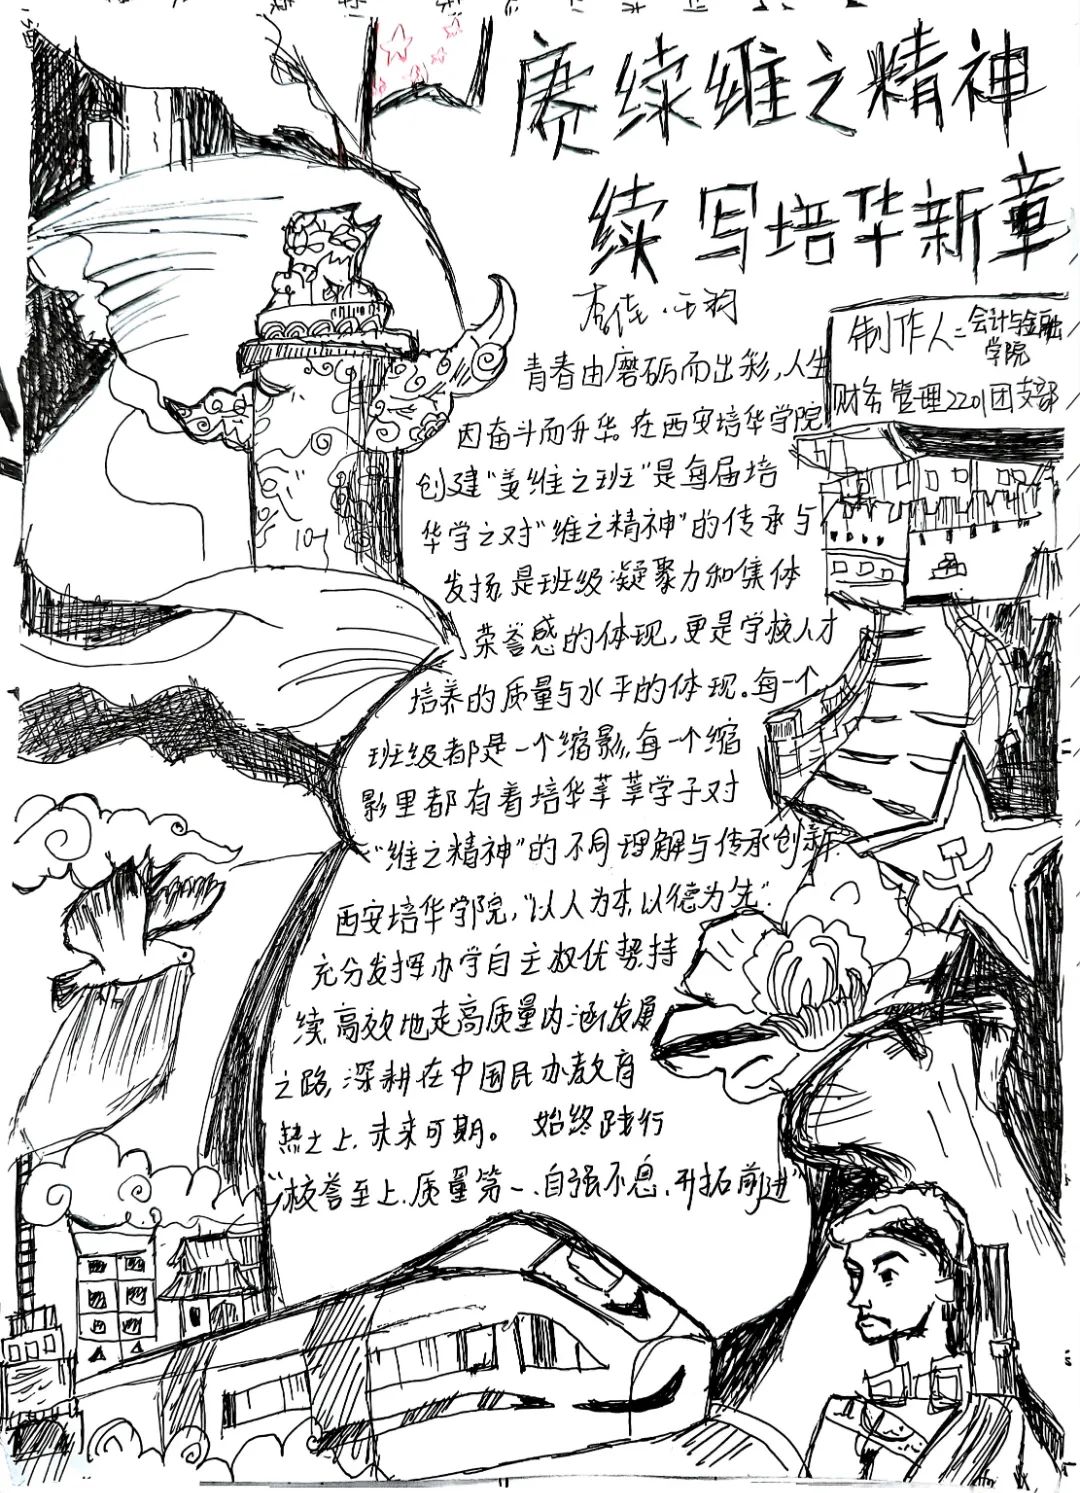 赓续维之精神
续写培华新章
制作人：会计与金融
学院
财务管理2201团支部
青春由磨砺而出彩，人生
因奋斗而升华。在西安培华学院
创建“姜维之班”是每届培
华学之对“维之精神”的传承与
发扬是班级凝聚力和集体
荣誉感的体现，更是学校人才
培养的质量与水平的体现。每一个
班级都是一个缩影，每一个缩
影里都有着培华莘莘学子对
“维之精神”的不同理解与传承创新
西安培华学院，“以人为本，以德为先”
充分发挥办学自主权优势持
续，高效地走高质量内涵发展
之路，深耕在中国民办教育
热土上，未来可期。 始终践行
“校誉至上、质量第一、自强不息、开拓前进”